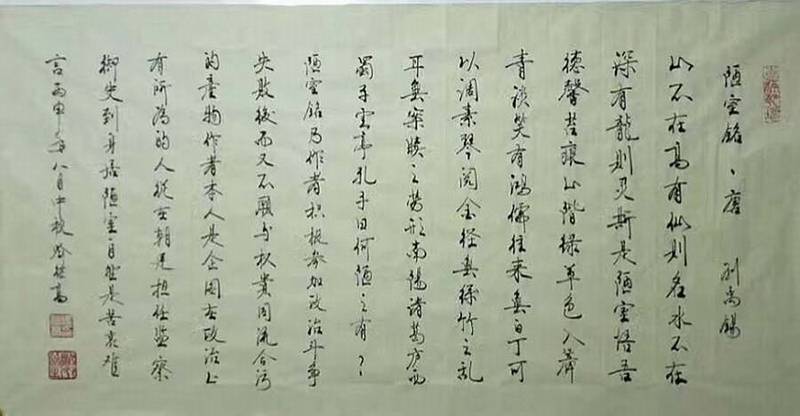 陋室铭、唐 刘禹锡
山不在高有仙则名水不在
深有龍则灵斯是陋室惟吾
德馨苔痕上階绿草色入簾
青谈笑有鸿儒往来無白丁可
以调素琴阅金经無丝竹之乱
耳無案牍之劳形南陽诸葛庐西
蜀子雲亭孔子曰何陋之有？
陋室铭乃作者积极参加政治斗争
失败後而又不願与权貴同流合污
的產物作者本人是企图在政治上
有所為的人從在朝廷担任监察
御史到身居陋室自然是苦衷难
言丙申年八月中秋